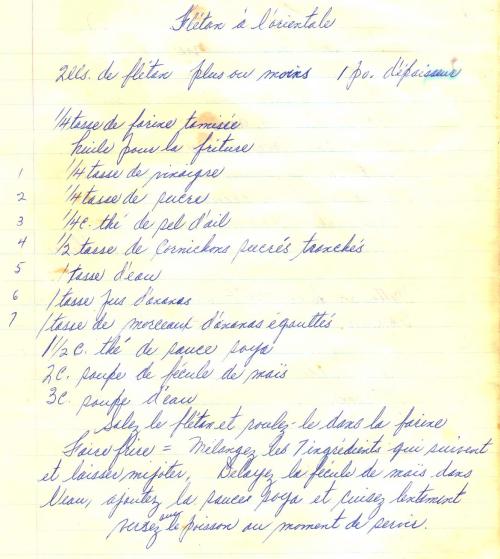 Flétan à l'orientale
2 lbs. de flétan plus ou moins 1 po. d'épaisseur
1/4 tasse de farine tamisée
huile pour la friture
1 1/4 tasse de vinaigre
2 1/4 tasse de sucre
3 1/4 c. thé de sel d'ail
4 1/2 tasse de cornichons sucrés tranchés
5 1 tasse d'eau
6 1 tasse jus d'ananas
7 1 tasse de morceaux d'ananas égouttés
1 1/2 c. thé de sauce soya
2 c. soupe de fécule de maïs
3 c. soupe d'eau
Salez le flétan et roulez-le dans la farine
Faire frire = Mélangez les 7 ingrédients qui suivent
et laisser mijoter. Délayez la fécule de mais dans
l'eau, ajoutez la sauce soya et cuisez lentement
versez sur le poisson au moment de servir.